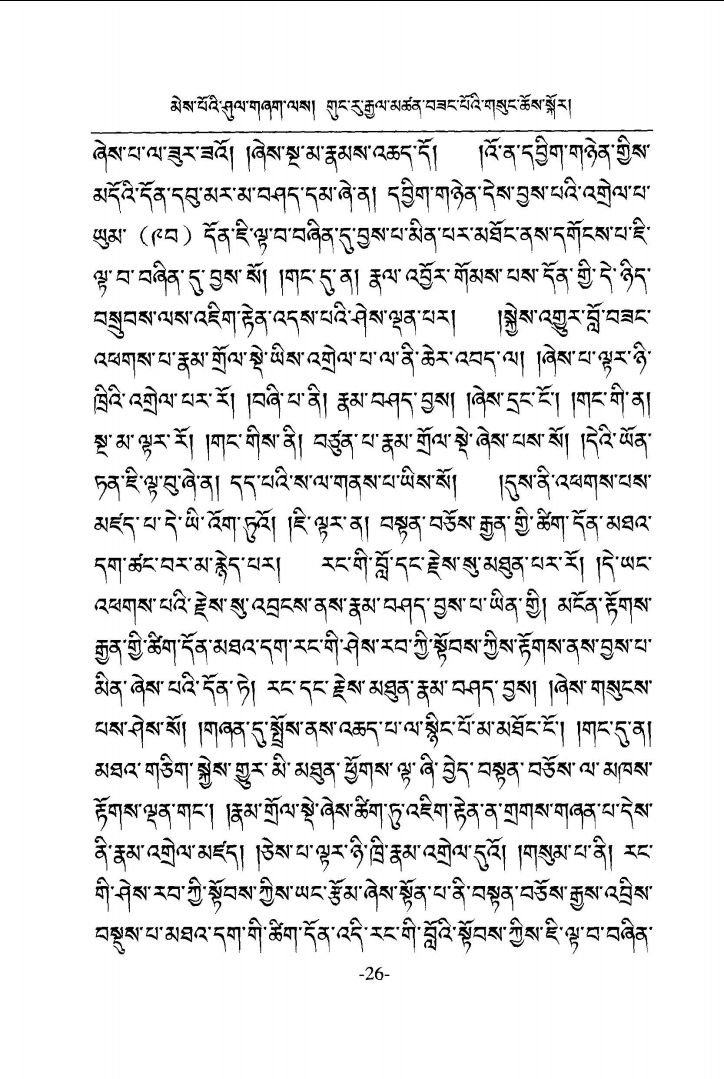 མེས་པོའི་ཤུལ་གཞག་ལས། གུང་རུ་རྒྱལ་མཚན་བཟང་པོའི་གསུང་ཆོས་སྐོར།
ཞེས་པ་ལ་ཟུར་ཟའོ། །ཞེས་སྔ་མ་རྣམས་འཆད་དོ། །འོ་ན་དབྱིག་གཉེན་གྱིས་
མདོའི་དོན་དབུ་མར་མ་བཤད་དམ་ཞེ་ན། དབྱིག་གཉེན་དེས་བྱས་པའི་འགྲེལ་པ་
ཡུམ་ (༩བ) དོན་ཇི་ལྟ་བ་བཞིན་དུ་བྱས་པ་མིན་པར་མཐོང་ནས་དགོངས་པ་ཇི་
ལྟ་བ་བཞིན་དུ་བྱས་སོ། །གང་དུ་ན། རྣལ་འབྱོར་གོམས་པས་དོན་གྱི་དེ་ཉིད་
བསྲུབས་ལས་འཇིག་རྟེན་འདས་པའི་ཤེས་ལྡན་པར། །སྐྱེས་འགྱུར་བློ་བཟང་
འཕགས་པ་རྣམ་གྲོལ་སྡེ་ཡིས་འགྲེལ་པ་ལ་ནི་ཆེར་འབད་ལ། །ཞེས་པ་ལྟར་ཉི་
ཁྲིའི་འགྲེལ་པར་རོ། །བཞི་པ་ནི། རྣམ་བཤད་བྱས། །ཞེས་དྲང་ངོ་། །གང་གི་ན།
སྔ་མ་ལྟར་རོ། །གང་གིས་ནི། བཙུན་པ་རྣམ་གྲོལ་སྡེ་ཞེས་པས་སོ། །དེའི་ཡོན་
ཏན་ཇི་ལྟ་བུ་ཞེ་ན། དད་པའི་ས་ལ་གནས་པ་ཡིས་སོ། །དུས་ནི་འཕགས་པས་
མཛད་པ་དེ་ཡི་འོག་ཏུའོ། །ཇི་ལྟར་ན། བསྟན་བཅོས་རྒྱན་གྱི་ཚིག་དོན་མཐའ་
དག་ཚང་བར་མ་རྙེད་པར། རང་གི་བློ་དང་རྗེས་སུ་མཐུན་པར་རོ། །དེ་ཡང་
འཕགས་པའི་རྗེས་སུ་འབྲངས་ནས་རྣམ་བཤད་བྱས་པ་ཡིན་གྱི། མངོན་རྟོགས་
རྒྱན་གྱི་ཚིག་དོན་མཐའ་དག་རང་གི་ཤེས་རབ་ཀྱི་སྟོབས་ཀྱིས་རྟོགས་ནས་བྱས་པ་
མིན་ཞེས་པའི་དོན་ཏེ། རང་དང་རྗེས་མཐུན་རྣམ་བཤད་བྱས། །ཞེས་གསུངས་
པས་ཤེས་སོ། །གཞན་དུ་སྤྲོས་ནས་འཆད་པ་ལ་སྙིང་པོ་མ་མཐོང་ངོ་། །གང་དུ་ན།
མཐའ་གཅིག་སྐྱེས་གྱུར་མི་མཐུན་ཕྱོགས་ལྟ་ཞི་བྱེད་བསྟན་བཅོས་ལ་མཁས་
རྟོགས་ལྡན་གང་། །རྣམ་གྲོལ་སྡེ་ཞེས་ཚིག་ཏུ་འཇིག་རྟེན་ན་གྲགས་གཞན་པ་དེས་
ནི་རྣམ་འགྲེལ་མཛད། །ཅེས་པ་ལྟར་ཉི་ཁྲི་རྣམ་འགྲེལ་དུའོ། །གསུམ་པ་ནི། རང་
གི་ཤེས་རབ་ཀྱི་སྟོབས་ཀྱིས་ཡང་རྩོམ་ཞེས་སྟོན་པ་ནི་བསྟན་བཅོས་རྒྱས་འབྲིས་
བསྡུས་པ་མཐའ་དག་གི་ཚིག་དོན་འདི་རང་གི་བློའི་སྟོབས་ཀྱིས་ཇི་ལྟ་བ་བཞིན་
-26-